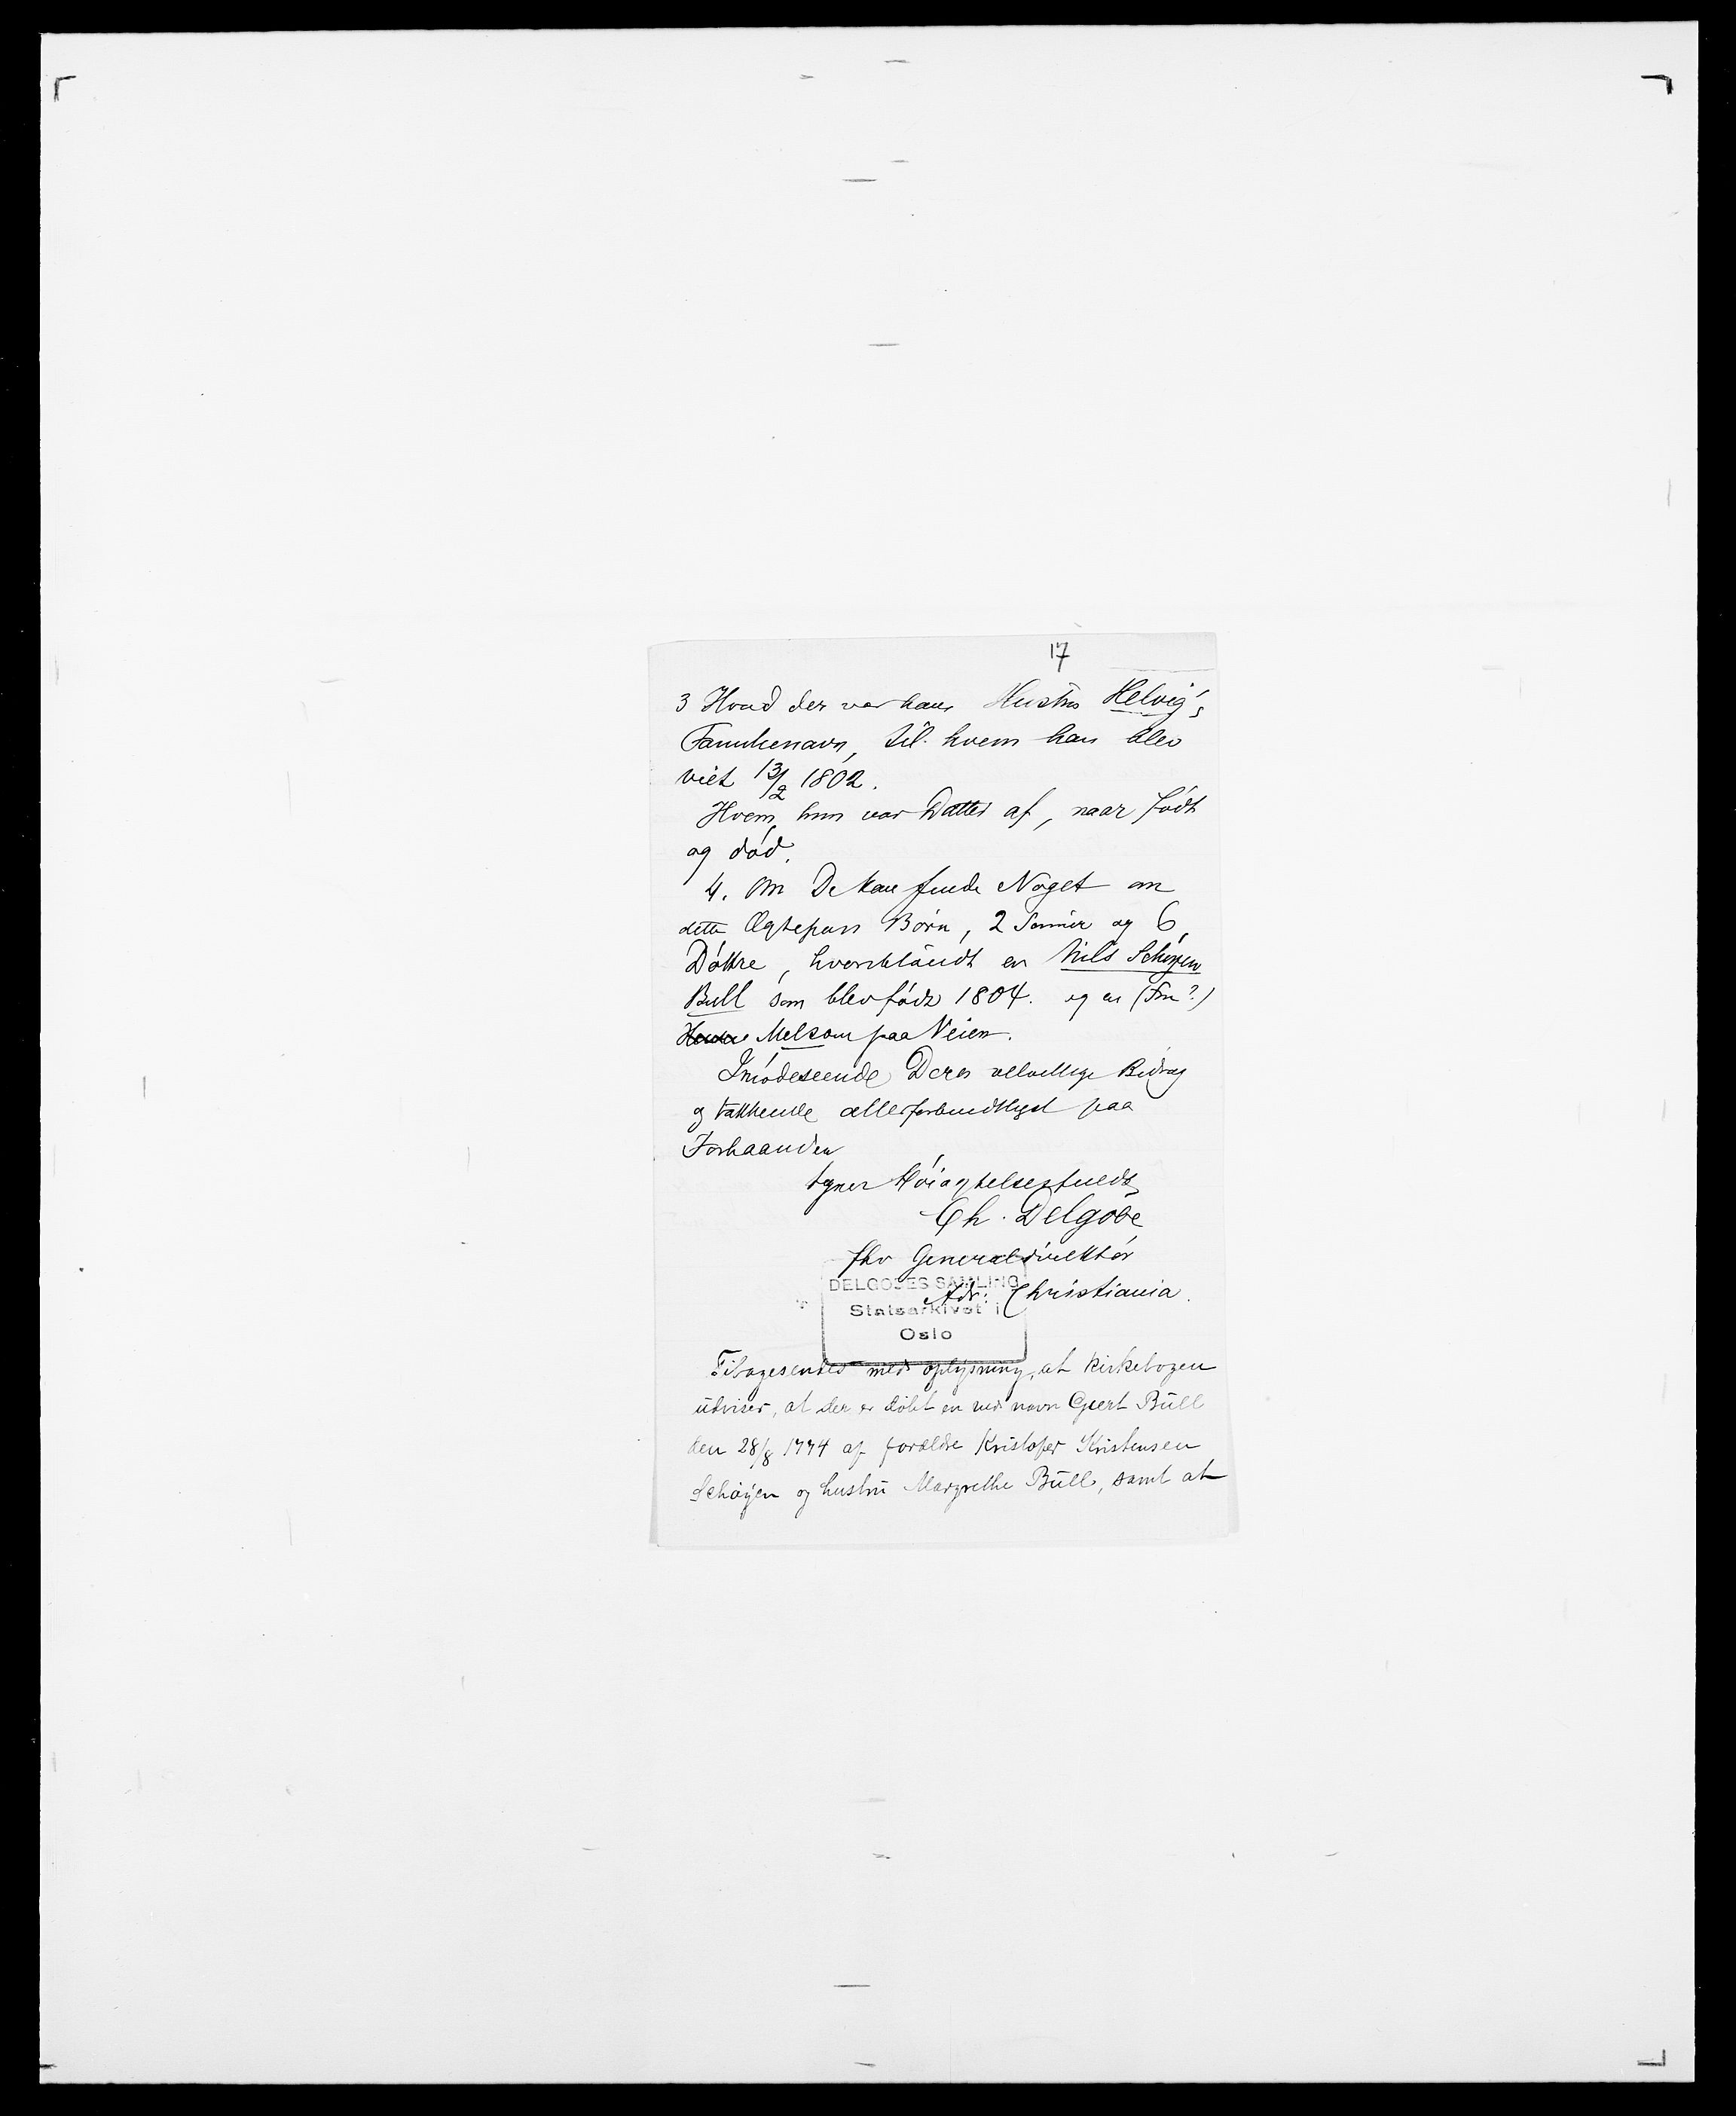 17
3 Hvad der var hans Hustrus Helvig's
Familienavn, til hvem han blev
viet 13/2 1802.
Hvem hun var Datter af, naar født
og død.
4. Om De kan finde Noget om
dette Ægtepars Børn, 2 Sønner og 6
Døttre, hvoriblandt en Nils Schøyen
Bull som blev født 1804. og en (Fru?)
Melsom paa Veien.
Imødeseende Deres velvillige Bidrag
og takkende allerforbindtligst paa
Forhaanden
tegner Høiagtelsesfuldt
Ch. Delgobe
fhv Generaldirektør
Adr: Christiania.
DELGOBES SAMLING
Statsarkivet i
Oslo
Tilbagesendes med oplysning, at kirkebogen
udviser, at der er døbt en ved navn Geert Bull
den 28/8 1774 af forældre Kristofer Kristensen
Schøyen og hustru Margrethe Bull, samt at